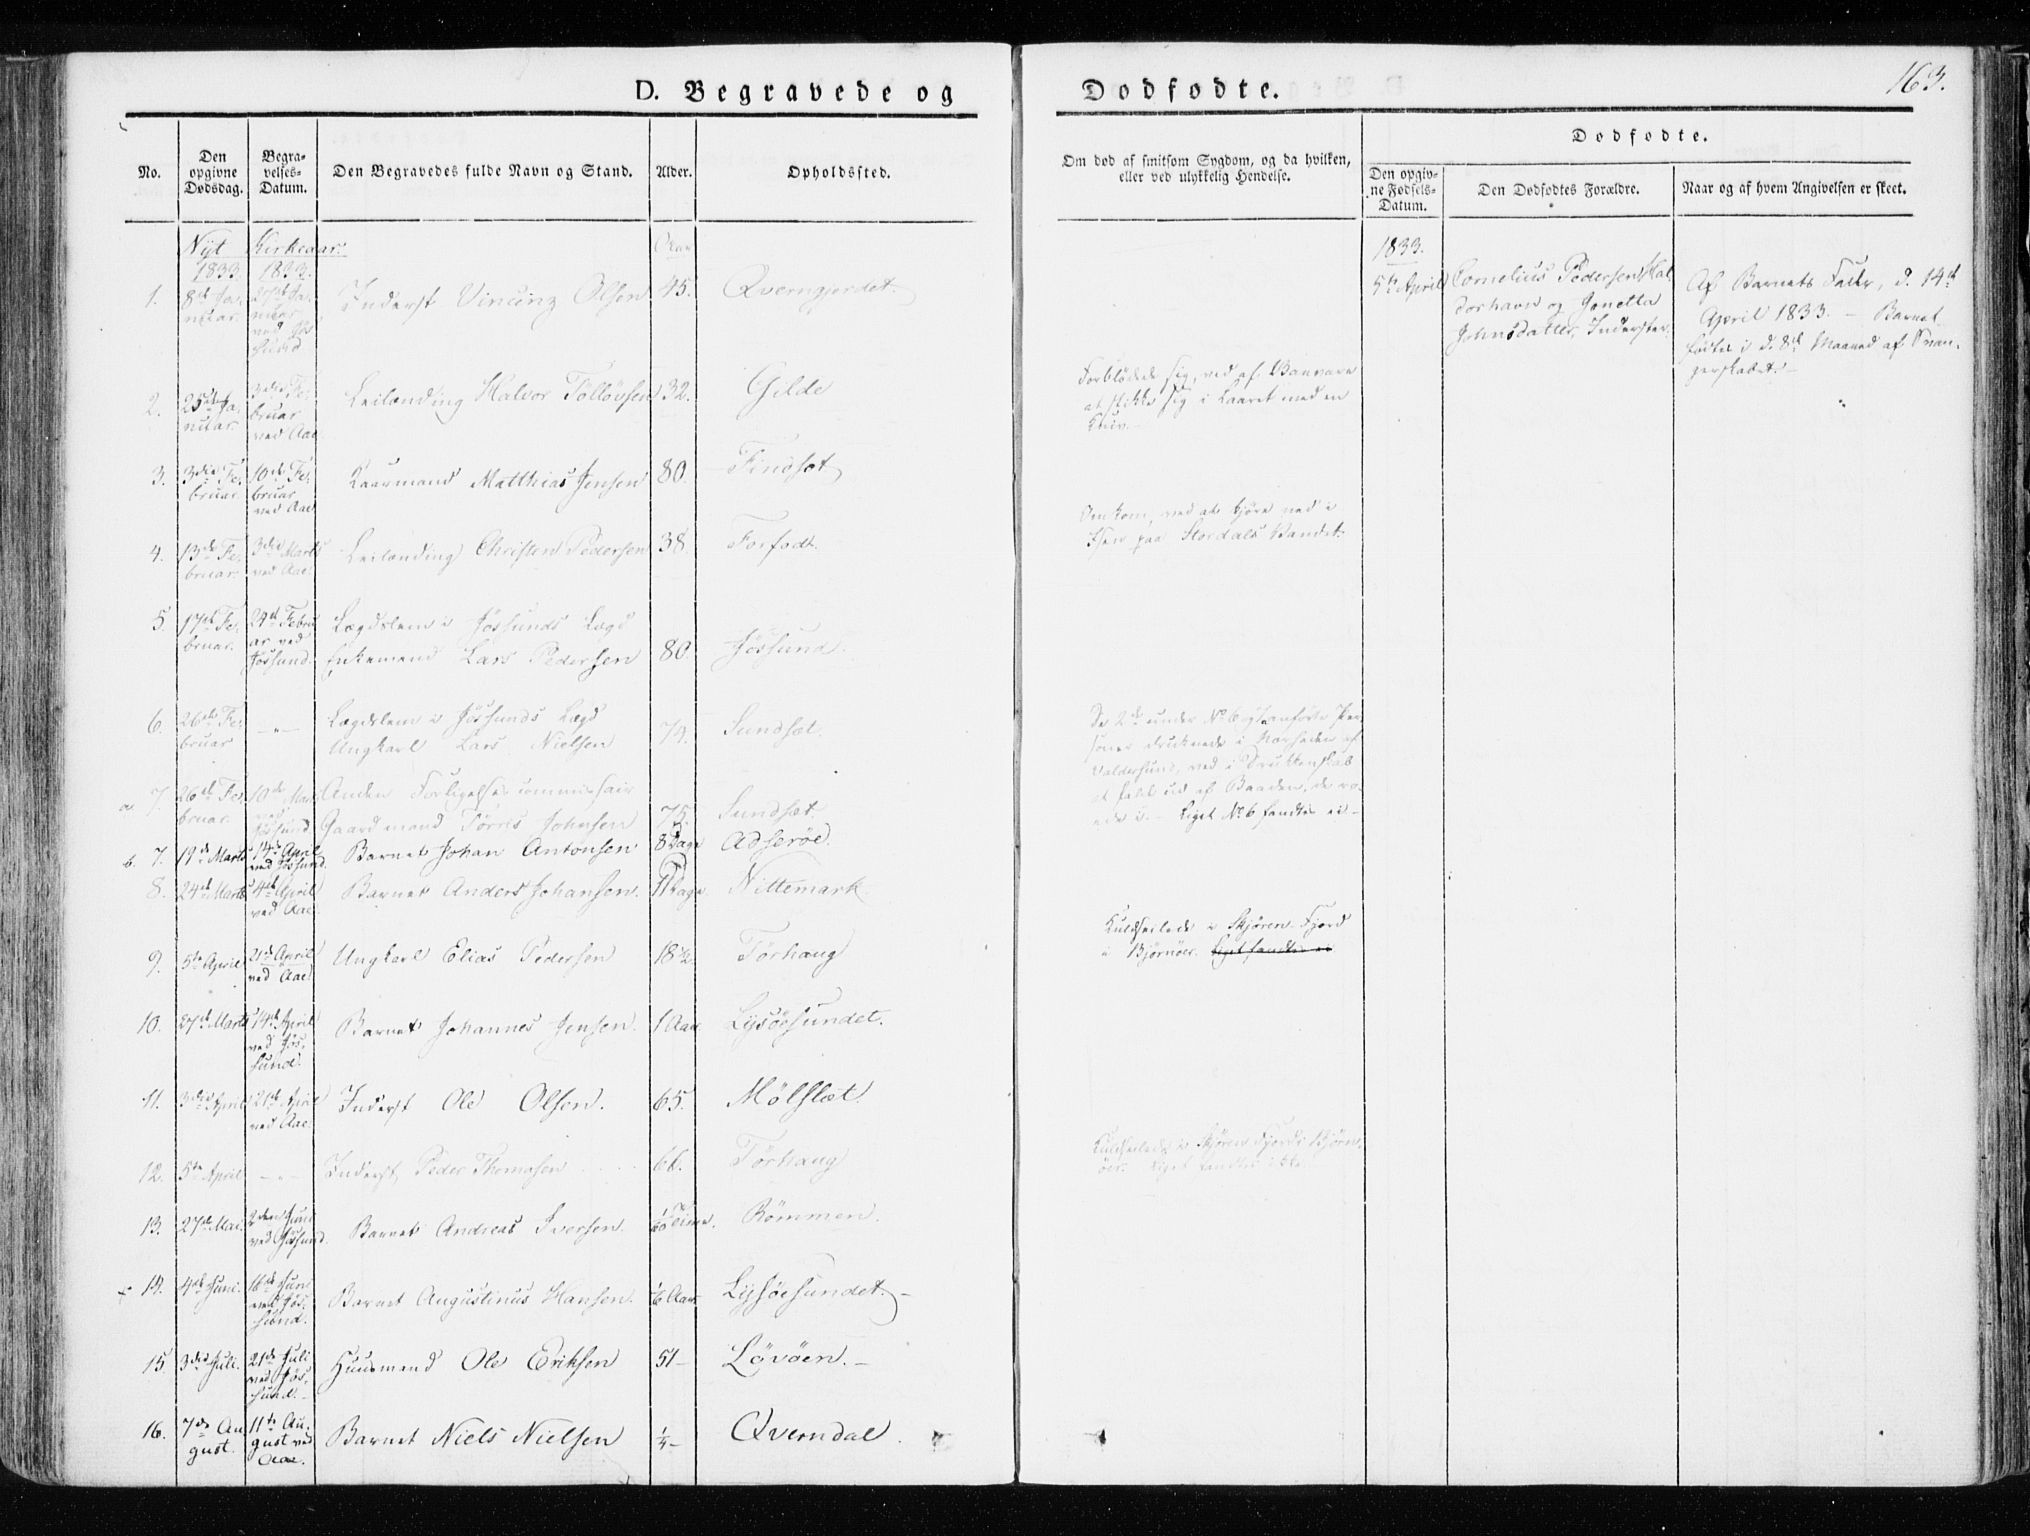 D. Begravede og
Dødfødte.
163.
No.
Den opgivne Dødsdag.
Begravelses-Datum.
Den Begravedes fulde Navn og Stand.
Alder.
Opholdssted.
Om død af smitsom Sygdom, og da hvilken, eller ved ulykkelig Hendelse.
Dødfødte.
Den opgivne Fødsels-Datum.
Den Dødfødtes Forældre.
Naar og af hvem Angivelsen er skeet.
Nyt Kirkeaar.
1833. 1833.
1. 8de Januar. 27de Januar ved Jøssund Inderst Vincenz Olsen 45. Qverngjerdet.
2. 25de Januar. 3die Februar ved Aae. Leilænding Halvor Tølløvsen 32. Gilde
Forblødede sig, ved af Vanvare
at stikke sig i Laaret med en
Kniv.
3. 3die Februar. 10de Februar ved Aae. Kaarmand Matthias Jensen 80. Findset
4. 13de Februar. 3die Marts ved Aae. Leilænding Christen Pedersen 38. Forfodt.
Omkom, ved at kjøre ned i
Isen paa Stordals Vandet.
5. 17de Februar. 24de Februar ved Jøssund. Lægdslem i Jøssunds Lægd
Enkemand Lars Pedersen 80. Jøssund.
6. 26de Februar — " — Lægdslem i Jøssunds Lægd
Ungkarl Lars Nielsen 74. Sundset.
De 2de under No 6 og 7 anførte Per-
soner druknede i Nærheden af
Valdersund, ved i Drukkenskab
at fald ud af Baaden, de ro-
ede i. – Liget No 6 fandtes ei –
a. 7. 26de Februar. 10de Marts ved Jøssund. Anden Forligelsescommissair
Gaardmand Tørres Johnsen 75. Sundset.
b. 7. 19de Marts 14de April ved Jøssund. Barnet Johan Antonsen 8 Dage Adserøe.
8. 24de Marts 4de April ved Aae. Barnet Anders Johansen. 11 Dage Nittemark.
9. 5te April 21de April ved Aae. Ungkarl Elias Pedersen 18½ Tørhaug
Kuldseilede i Skjøren-Fjord
i Bjørnøer. Liget fandtes ei
10. 27de Marts 14de April ved Jøssund. Barnet Johannes Jensen. 1 Aar. Lysøesundet.
11. 3die April 21de April ved Aae. Inderst Ole Olsen. 65. Mølslæt.
12. 5te April — " — Inderst Peder Thomasen 66. Tørhaug
Kuldseilede i Skjøren Fjord i Bjørn-
øer. Liget fandtes ikke.
13. 27de Mai. 2den Juni ved Jøssund. Barnet Andreas Iversen. Time. Rømmen.
14. 4de Juni. 16de Juni ved Jøssund. Barnet Augustinus Hansen. 1/6 Aar. Lysøesundet. –
15. 3die Juli. 21de Juli ved Jøssund. Huusmand Ole Eriksen 51 – Løvøen. –
16. 7de August. 11te August ved Aae. Barnet Niels Nielsen ¼ – Qverndal.
1833.
5te April Cornelius Pedersen
og Gonetta
Johnsdatter, Inderster.
Af Barnets Fader, d. 14de
April 1833. – Barnet
fødtes i d. 8de Maaned af Svan-
gerskabet. –